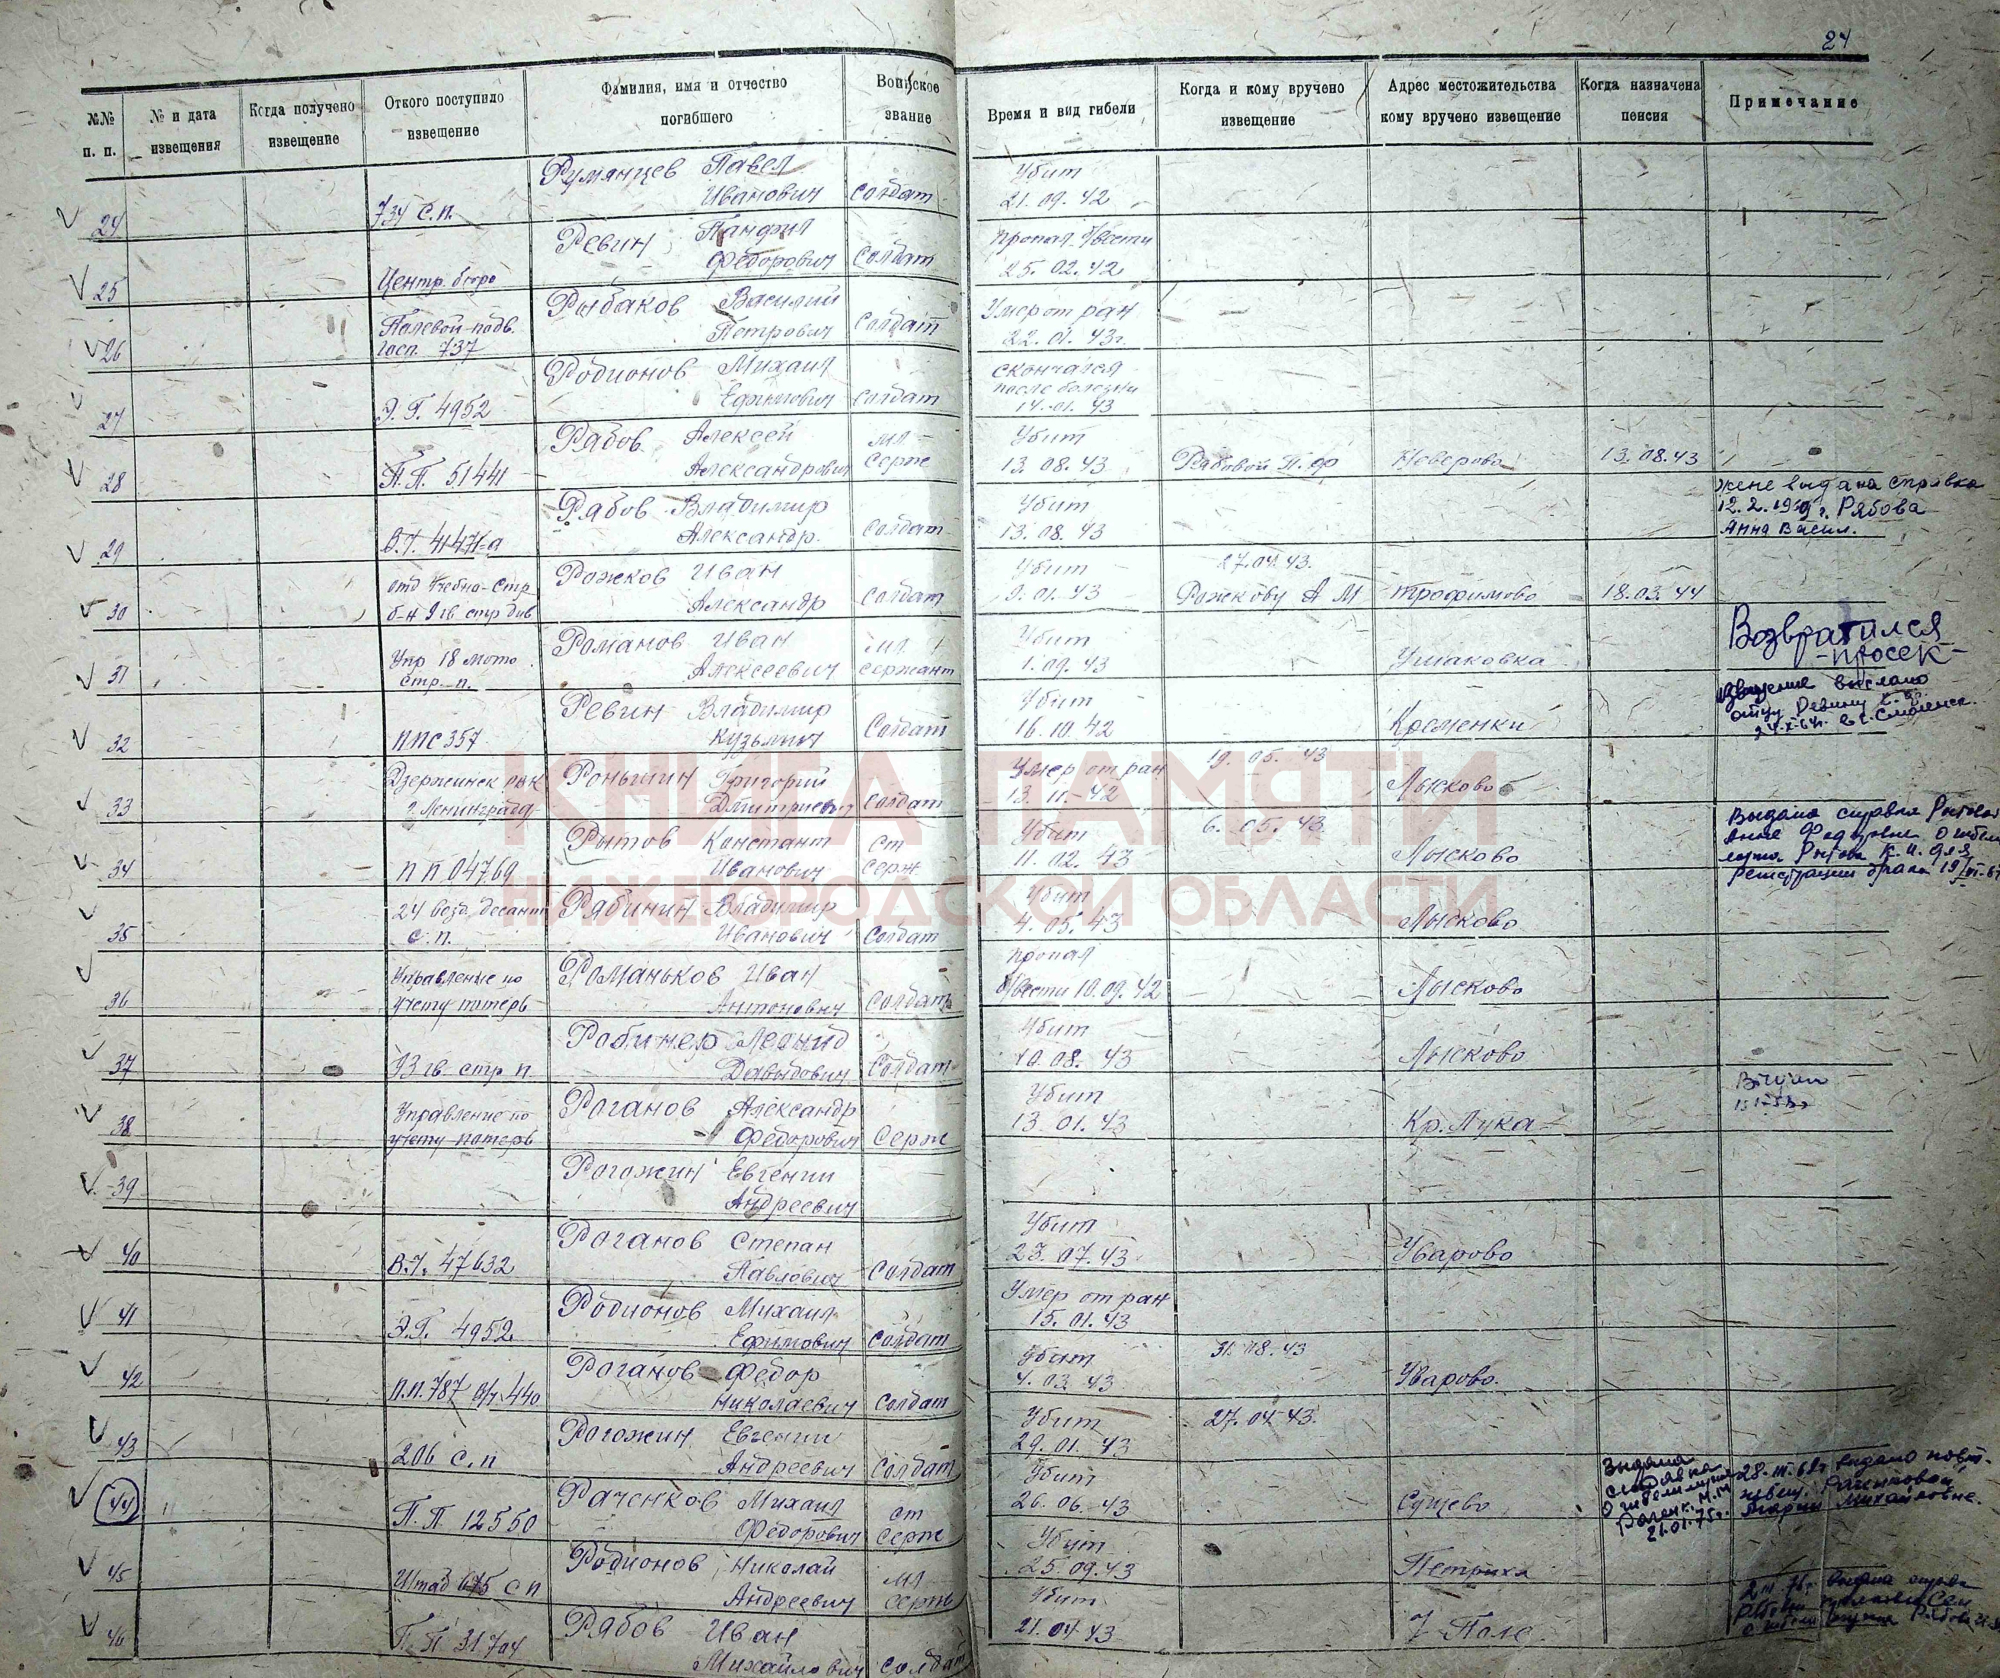 24
№№ п. п.
№ и дата извещения
Когда получено извещение
Откого поступило извещение
Фамилия, имя и отчество погибшего
Воинское звание
Время и вид гибели
Когда и кому вручено извещение
Адрес местожительства кому вручено извещение
Когда назначена пенсия
Примечание
24 734 с.п. Румянцев Павел Иванович солдат Убит 21.09.42
25 Центр. бюро Ревин Панфил Федорович солдат пропал б/вести 25.02.42
26 Полевой подв. госп. 737 Рыбаков Василий Петрович солдат Умер от ран 22.01.43г.
27 Э.Г. 4952 Родионов Михаил Ефимович солдат скончался после болезни 14.01.43
28 П.П. 51441 Рябов Алексей Александрович мл серж Убит 13.08.43 Рябовой П.Ф Неверово 13.08.43
29 В.Ч. 41471-а Рябов Владимир Александр. солдат Убит 13.08.43 жене выдана справка Рябова Анна Васил.
30 отд Учебно-Стр б-н 9 гв стр див Рожков Иван Александр солдат Убит 9.01.43 27.04.43. Рожкову А М Трофимово 18.03.44
31 Упр 18 мото стр. п. Романов Иван Алексеевич мл. сержант Убит 1.09.43 Ушаковка Возвратился -просек-
32 ппс 357 Ревин Владимир Кузьмич Солдат Убит 16.10.42 Кременки извещение выслано отцу Ревину
33 Дзержинск РВК г. Ленинграда Роньшин Григорий Дмитриевич солдат Умер от ран 13.11.42 19.05.43 Лысково
34 п п 04769 Рытов Констант Иванович ст серж Убит 11.02.43 6.05.43 Лысково Выдана справка Рытовой Анне Федоровне о гибели мужа Рытова К.И. для регистрации брака
35 24 возд. десант с.п. Рябинин Владимир Иванович солдат Убит 4.05.43 Лысково
36 Управление по учету потерь Романьков Иван Антонович солдат пропал б/вести 10.09.42 Лысково
37 93 гв. стр п. Рабинер Леонид Давыдович Солдат Убит 10.08.43 Лысково
38 Управление по учету потерь Роганов Александр Федорович Серж Убит 13.01.43 Кр. Лука
39 Рогожин Евгений Андреевич
40 В.Ч. 47632 Роганов Степан Павлович солдат Убит 23.07.43 Уварово
41 Э.Г. 4952 Родионов Михаил Ефимович солдат Умер от ран 15.01.43
42 П.П. 787 в/ч 440 Роганов Федор Николаевич солдат Убит 4.03.43 31.08.43 Уварово
43 206 с.п Рогожин Евгений Андреевич солдат Убит 29.01.43 27.04.43.
44 П.П 12550 Раченков Михаил Федорович ст серж Убит 26.06.43 Сущево Выдана справка о гибели мужа 21.01.75г. выдано повт. извещ. Раченковой Марии Михайловне.
45 Штаб 645 с п Родионов Николай Андреевич мл серж Убит 25.09.43 Петриха
46 П П 31704 Рябов Иван Михайлович солдат Убит 21.04.43 Ч Поле
КНИГА ПАМЯТИ
НИЖЕГОРОДСКОЙ ОБЛАСТИ